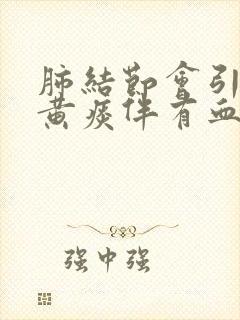 肺結節會引
黄痰伴有血
强中强